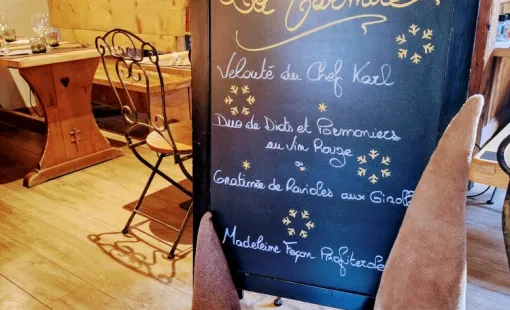 Velouté du Chef Karl
Duo de Diots et Pormoniers
au Vin Rouge
ou
Gratinée de Ravioles aux Giroll
Madeleine Façon Profiterole